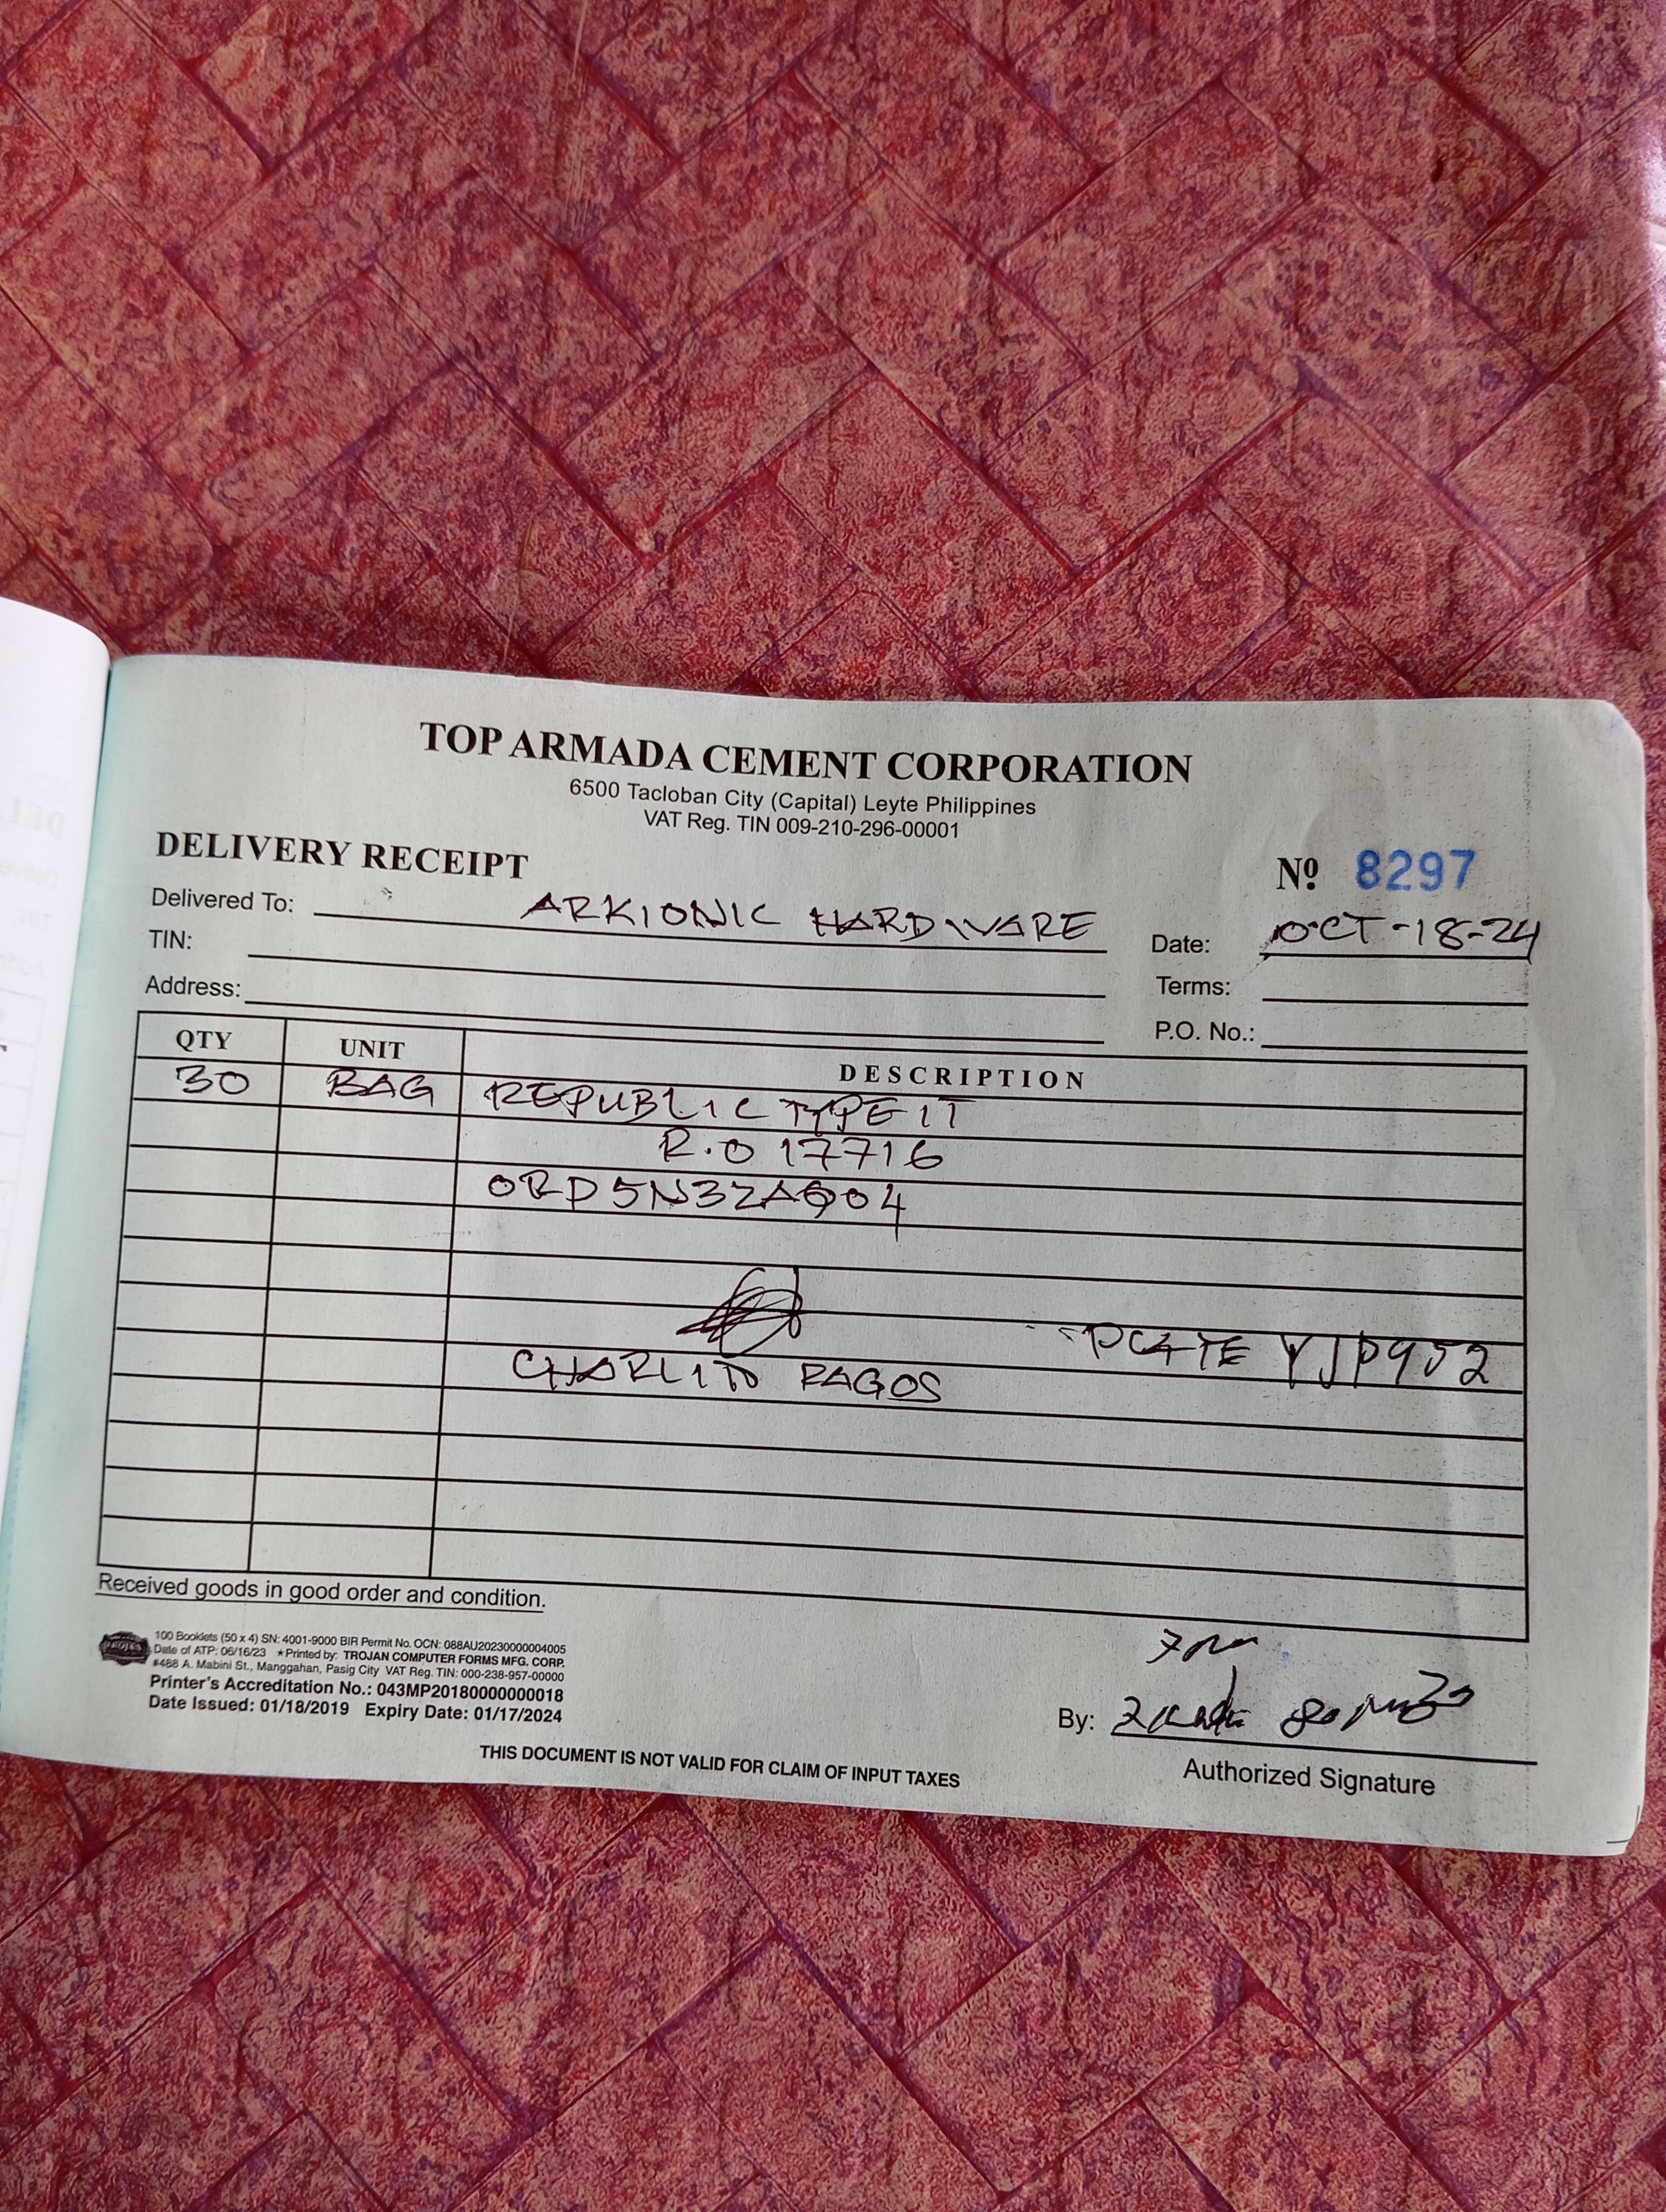 TOP ARMADA CEMENT CORPORATION
6500 Tacloban City (Capital) Leyte Philippines
VAT Reg. TIN 009-210-296-00001
DELIVERY RECEIPT
Nº 8297
Delivered To: ARKIONIC HARDWARE
Date: OCT-18-24
TIN:
Terms:
Address:
P.O. No.:
QTY UNIT DESCRIPTION
30 BAG REPUBLIC TYPE 1T
R.O 17716
ORD5N3ZAQ04
PLATE YJP952
CHARLITO PAGOS
Received goods in good order and condition.
100 Booklets (50 x 4) SN: 4001-9000 BIR Permit No. OCN: 088AU20230000004005
Date of ATP: 06/16/23 ★Printed by: TROJAN COMPUTER FORMS MFG. CORP.
#488 A. Mabini St., Manggahan, Pasig City VAT Reg. TIN: 000-238-957-00000
Printer's Accreditation No.: 043MP20180000000018
Date Issued: 01/18/2019 Expiry Date: 01/17/2024
By:
Authorized Signature
THIS DOCUMENT IS NOT VALID FOR CLAIM OF INPUT TAXES